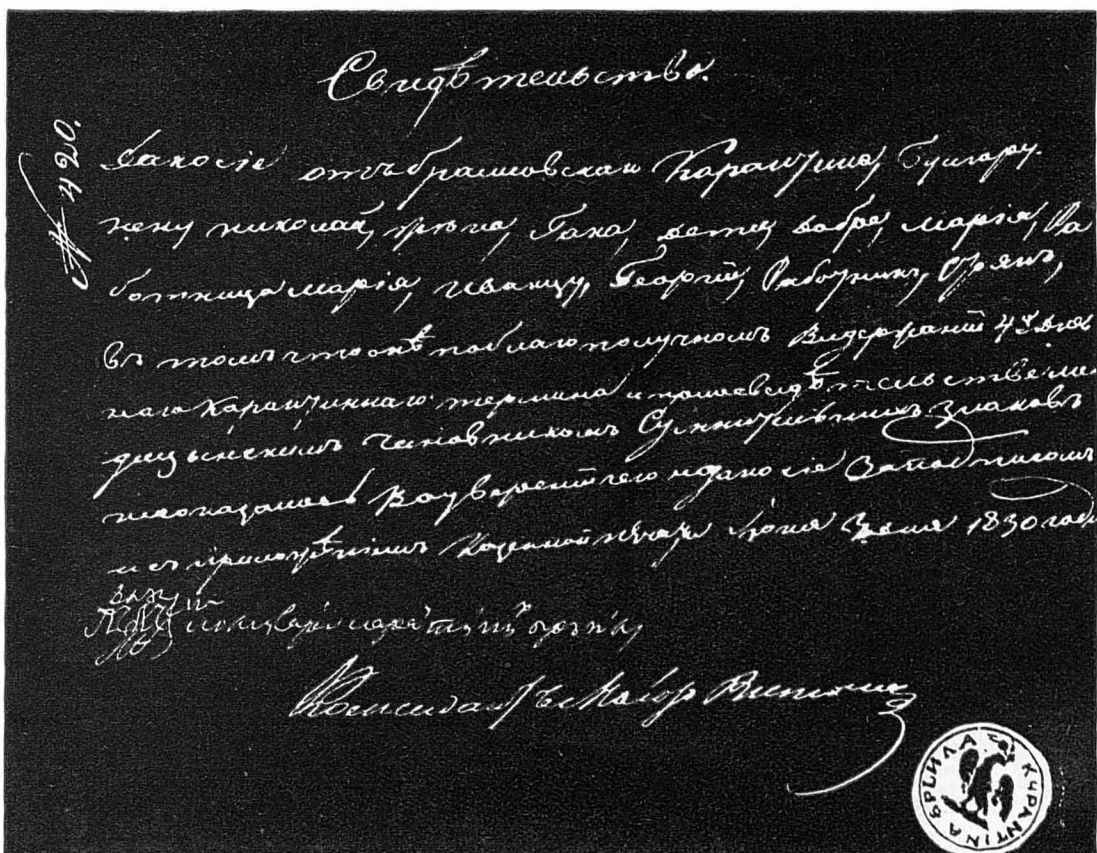 Свидѣтельство.
№ 420.
Дано сіе отъ браиловскаго Карантина, Булгару
нену николай, жѣна, Гана, детей добре, Марія, Ра
ботница марія, иванцу, Георгій, Работникъ, Стоянъ,
въ томъ что онѣ по благополучномъ Выдержаніи 42 днев
наго Карантиннаго термина и по освидѣтельстве ме
дицынскимъ чиновникомъ Сумнительныхъ знаковъ
неоказалось Во увереніи чего и дано сіе За подписомъ
и съ приложѣніемъ Казенной печати Іюня 3 дня 1830 года
Комисаръ Маіоръ
КАРАНТINA БРЪИЛА